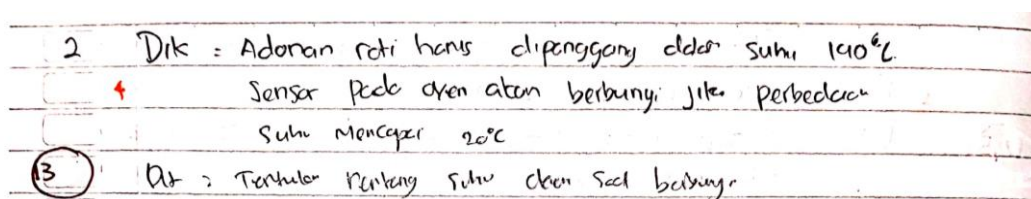 2 Dik : Adonan roti harus dipanggang dalam suhu 190°C.
4 Sensor pada oven akan berbunyi jika perbedaan
suhu mencapai 20°C
13 Dit : Tentukan rentang suhu oven saat berbunyi